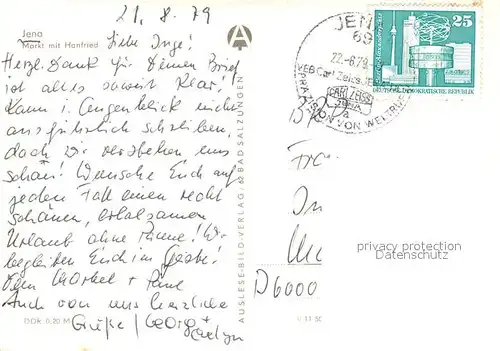 21.8.79
Jena
Markt mit Hanfried
Liebe Inge!
Herzl. Dank für Deinen Brief
ist alles soweit klar!
Kann im Augenblick nicht
ausführlich schreiben,
doch wir verstehen uns
schon! Wünsche Euch auf
jeden Fall einen recht
schönen, erholsamen
Urlaub ohne Pänne! Wir
begleiten Euch im Geiste!
+
Auch von uns herzliche
Grüße / Georg +
DDR 0,20 M
AUSLESE-BILD-VERLAG, 62 BAD SALZUNGEN
JENA
69
22.-8.79
VEB Carl Zeiss JENA
CARL ZEISS
JENA
a
PRÄZISION VON WELTRUF
25
DEUTSCHE DEMOKRATISCHE REPUBLIK
D 6000
privacy protection
Datenschutz